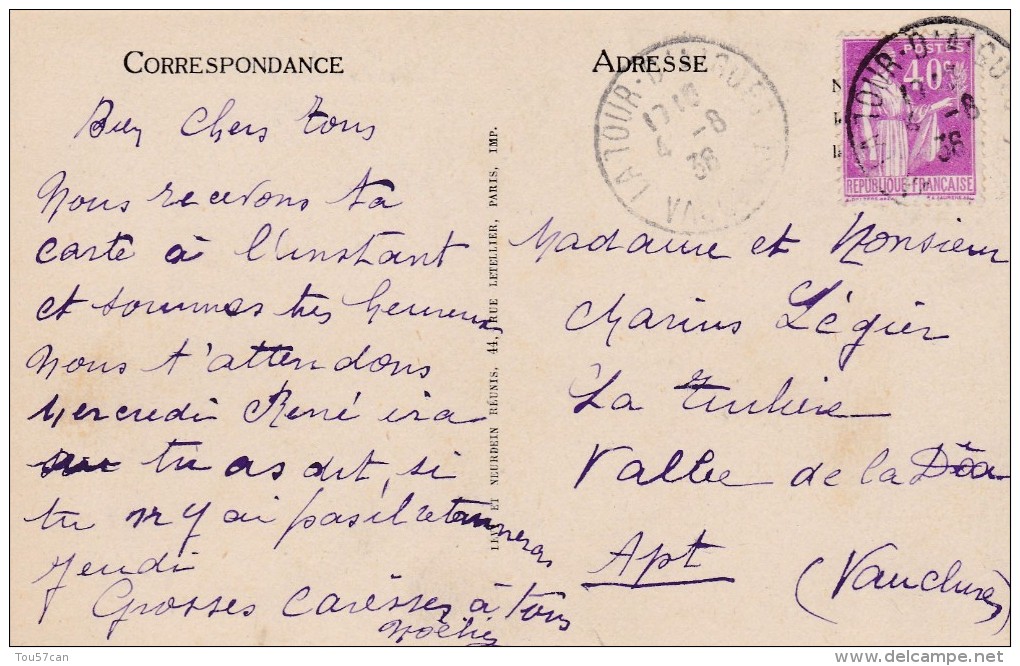 CORRESPONDANCE
Bien Chers tous
Nous recevons ta
carte à l'instant
et sommes très heureux
Nous t'attendons
Mercredi René ira
tu as dit, si
tu n'y ai pas il retournera
Jeudi
Grosses caresses à tous
LEVY ET NEURDEIN RÉUNIS, 44, RUE LETELLIER, PARIS, IMP.
ADRESSE
LA TOUR-D'AIGUES
-8
36
POSTES
40c
REPUBLIQUE FRANÇAISE
LA TOUR-D'AIGUES
-8
36
Madame et Monsieur
Marius Légier
La
Vallée de la Dôa
Apt (Vaucluse)
Tou57can
www.delcampe.net